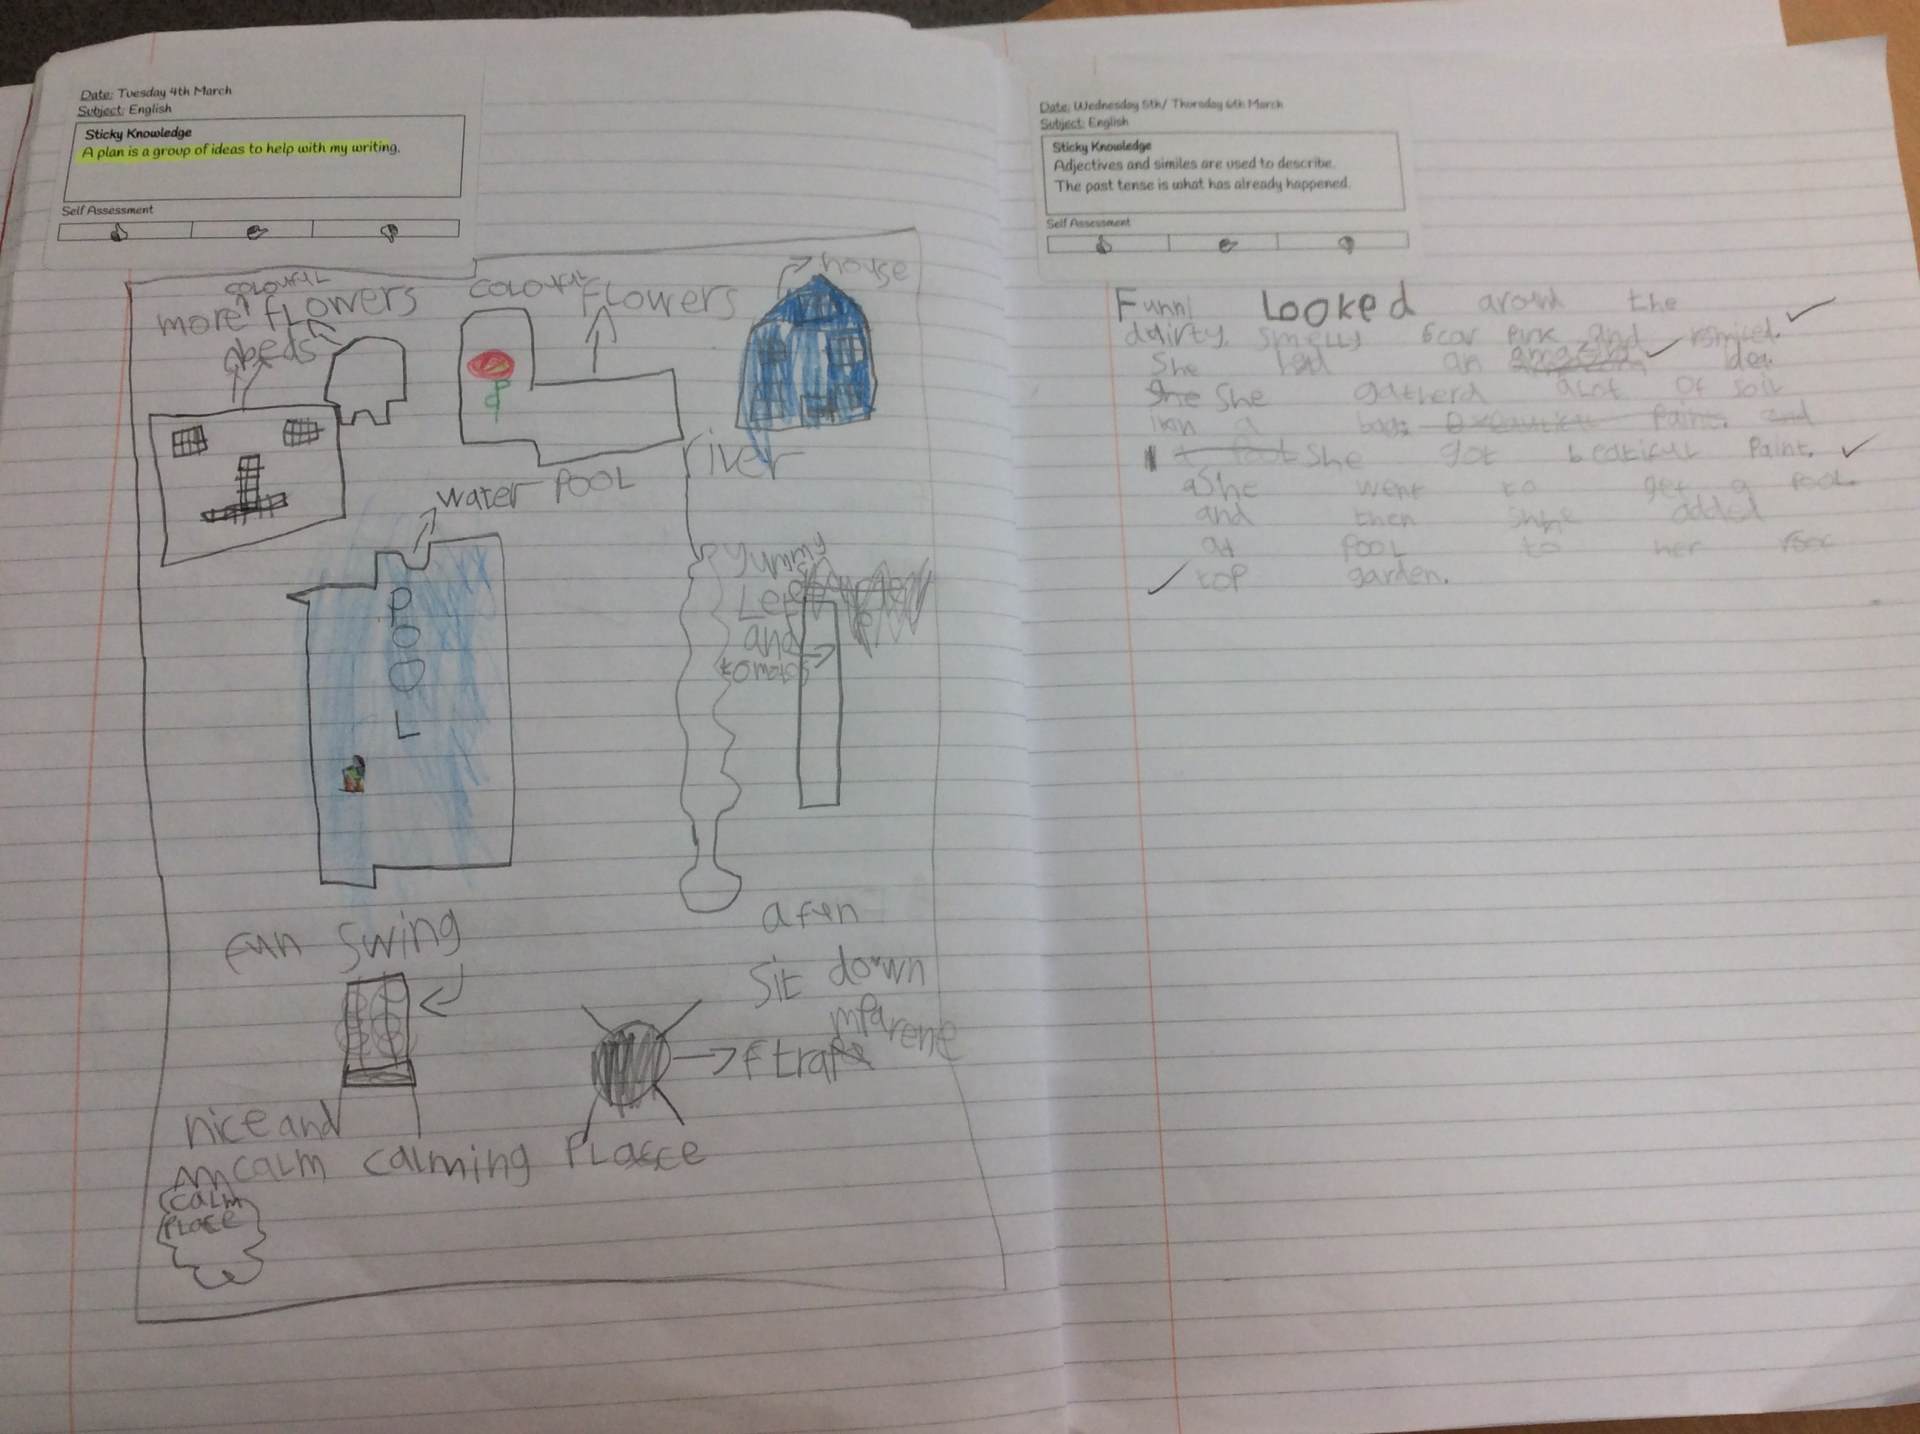 Date: Tuesday 4th March
Subject: English
Sticky Knowledge
A plan is a group of ideas to help with my writing.
Self Assessment
colourful
more flowers
beds
colourful flowers
house
river
water pool
POOL
yummy
and
tomatos
fun swing
a fun
sit down
nice and
calm calming place
calm
place
Date: Wednesday 5th/ Thursday 6th March
Subject: English
Sticky Knowledge
Adjectives and similes are used to describe.
The past tense is what has already happened.
Self Assessment
Funni Looked around the
ddirty smelly and
She had an idea.
She gatherd alot of soil
a bag
She got beatiful Paint.
She went to get a pool
and then added
pool to her
top garden.